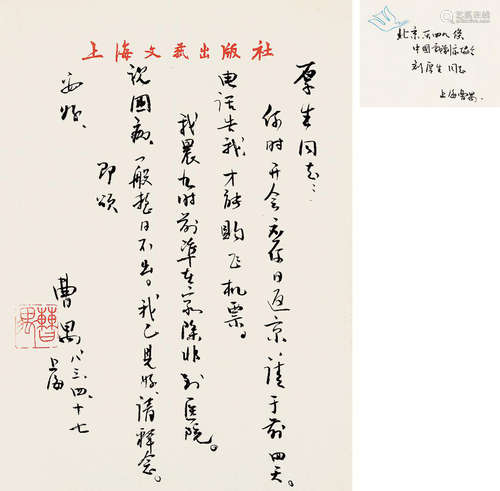 上海文艺出版社
厚生同志：
何时开会、何日返京，请于前四天
电话告我，才能购飞机票。
我晨九时前准在家，除非到医院。
说国病，一般整日不出。我已见好，请释念。
即颂
安好、
曹禺
八三、四、十七
上海
曹禺
中国戏剧家协会
刘厚生同志
上海曹禺